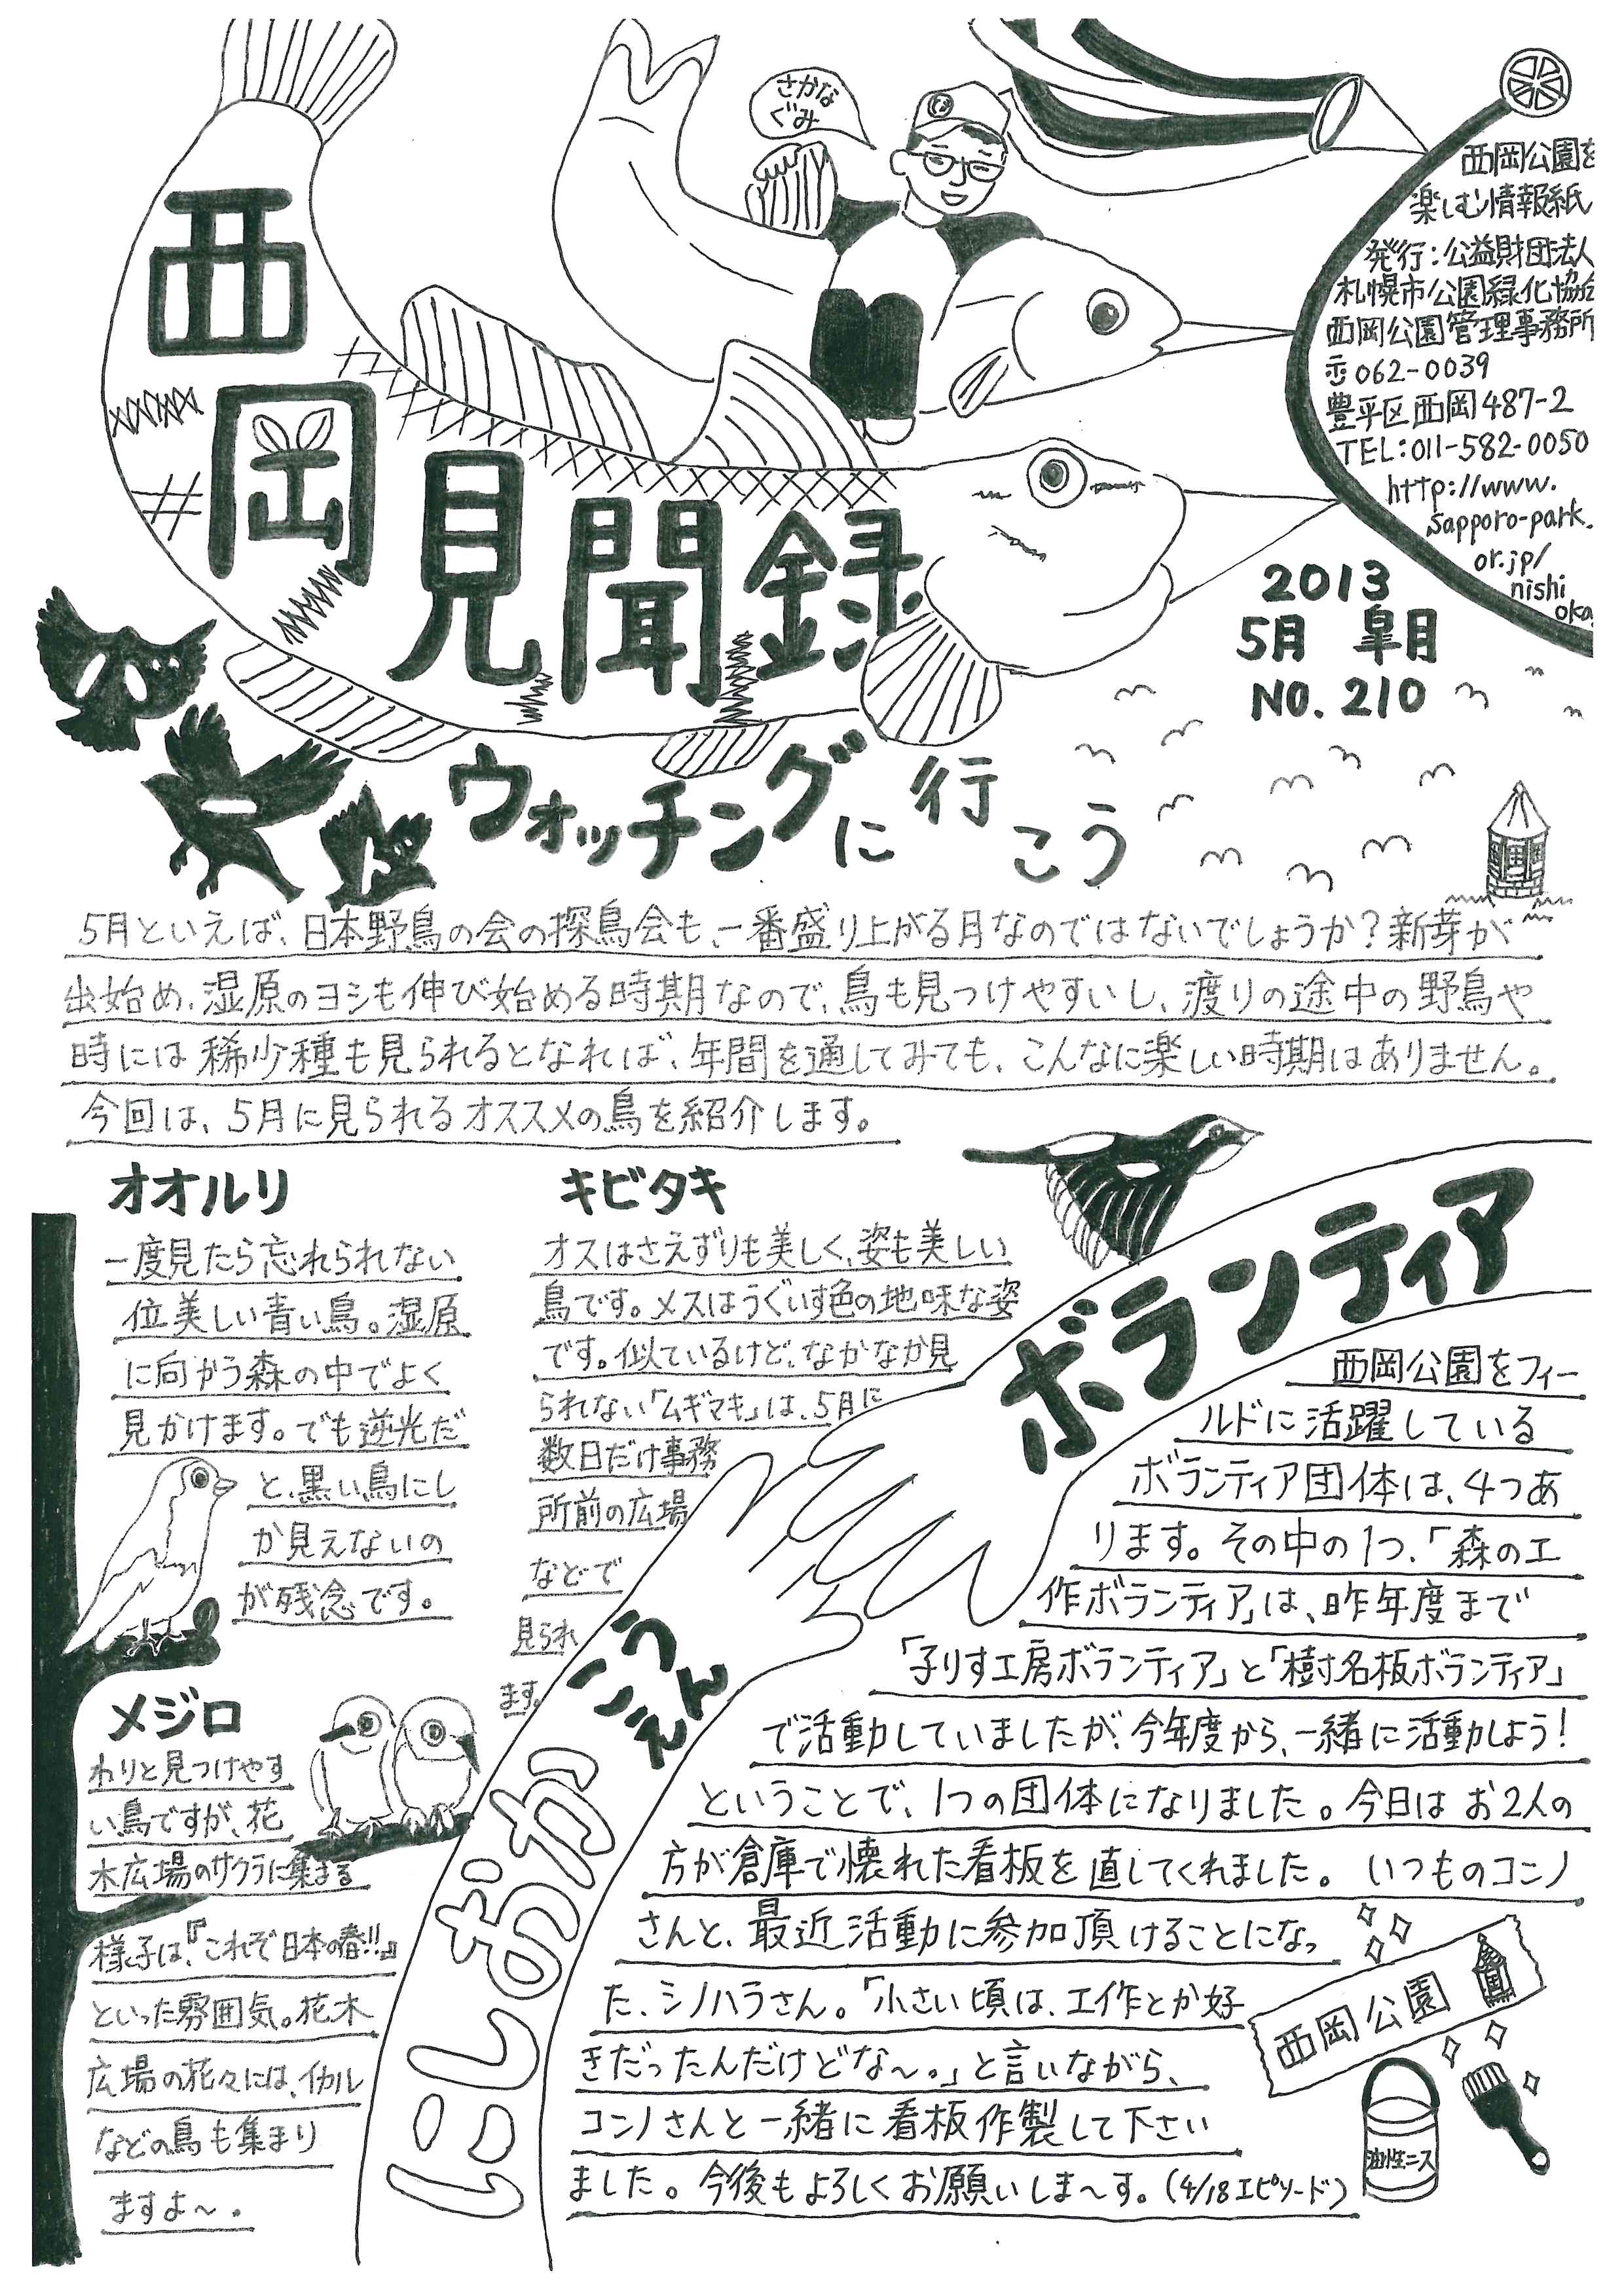 さかな
ぐみ
西岡公園を
楽しむ情報紙
発行：公益財団法人
札幌市公園緑化協会
西岡公園管理事務所
〒062-0039
豊平区西岡487-2
TEL:011-582-0050
http://www.
sapporo-park.
or.jp/
nishi
oka
西岡見聞録
2013
5月 皐月
NO.210
ウォッチングに行こう
5月といえば、日本野鳥の会の探鳥会も、一番盛り上がる月なのではないでしょうか？新芽が
出始め、湿原のヨシも伸び始める時期なので、鳥も見つけやすいし、渡りの途中の野鳥や
時には稀少種も見られるとなれば、年間を通してみても、こんなに楽しい時期はありません。
今回は、5月に見られるオススメの鳥を紹介します。
オオルリ
一度見たら忘れられない
位美しい青い鳥。湿原
に向かう森の中でよく
見かけます。でも逆光だ
と、黒い鳥にし
か見えないの
が残念です。
キビタキ
オスはさえずりも美しく、姿も美しい
鳥です。メスはうぐいす色の地味な姿
です。似ているけど、なかなか見
られない「ムギマキ」は、5月に
数日だけ事務
所前の広場
などで
見られ
ます。
メジロ
わりと見つけやす
い鳥ですが、花
木広場のサクラに集まる
様子は、『これぞ日本の春!!』
といった雰囲気。花木
広場の花々には、イカル
などの鳥も集まり
ますよ〜。
にしおか
こうえん
ボランティア
西岡公園をフィー
ルドに活躍している
ボランティア団体は、4つあ
ります。その中の1つ、「森の工
作ボランティア」は、昨年度まで
「子りす工房ボランティア」と「樹名板ボランティア」
で活動していましたが、今年度から、一緒に活動しよう！
ということで、1つの団体になりました。今日はお2人の
方が倉庫で壊れた看板を直してくれました。いつものコンノ
さんと、最近活動に参加頂けることになっ
た、シノハラさん。「小さい頃は、工作とか好
きだったんだけどな〜。」と言いながら、
コンノさんと一緒に看板作製して下さい
ました。今後もよろしくお願いしま〜す。(4/18エピソード)
西岡公園
油性ニス